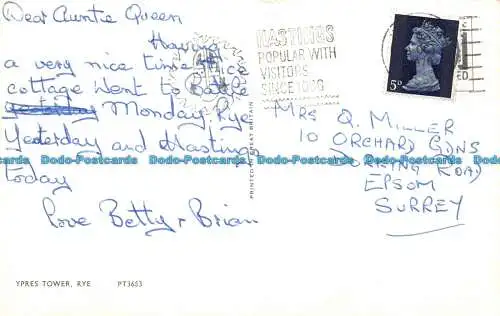 Dear Auntie Queen
Having
a very nice time nice
cottage went to Battle
yesterday Monday, Rye
Yesterday and Hastings
today
love Betty & Brian
HASTINGS
POPULAR WITH
VISITORS
SINCE 1066
5D
MRS Q. MILLER
10 ORCHARD GDNS
DORKING ROAD
EPSOM
SURREY
PRINTED IN GREAT BRITAIN
Dodo-Postcards Dodo-Postcards Dodo-Postcards Dodo-Postcards Dodo-Postcards
YPRES TOWER, RYE PT3653